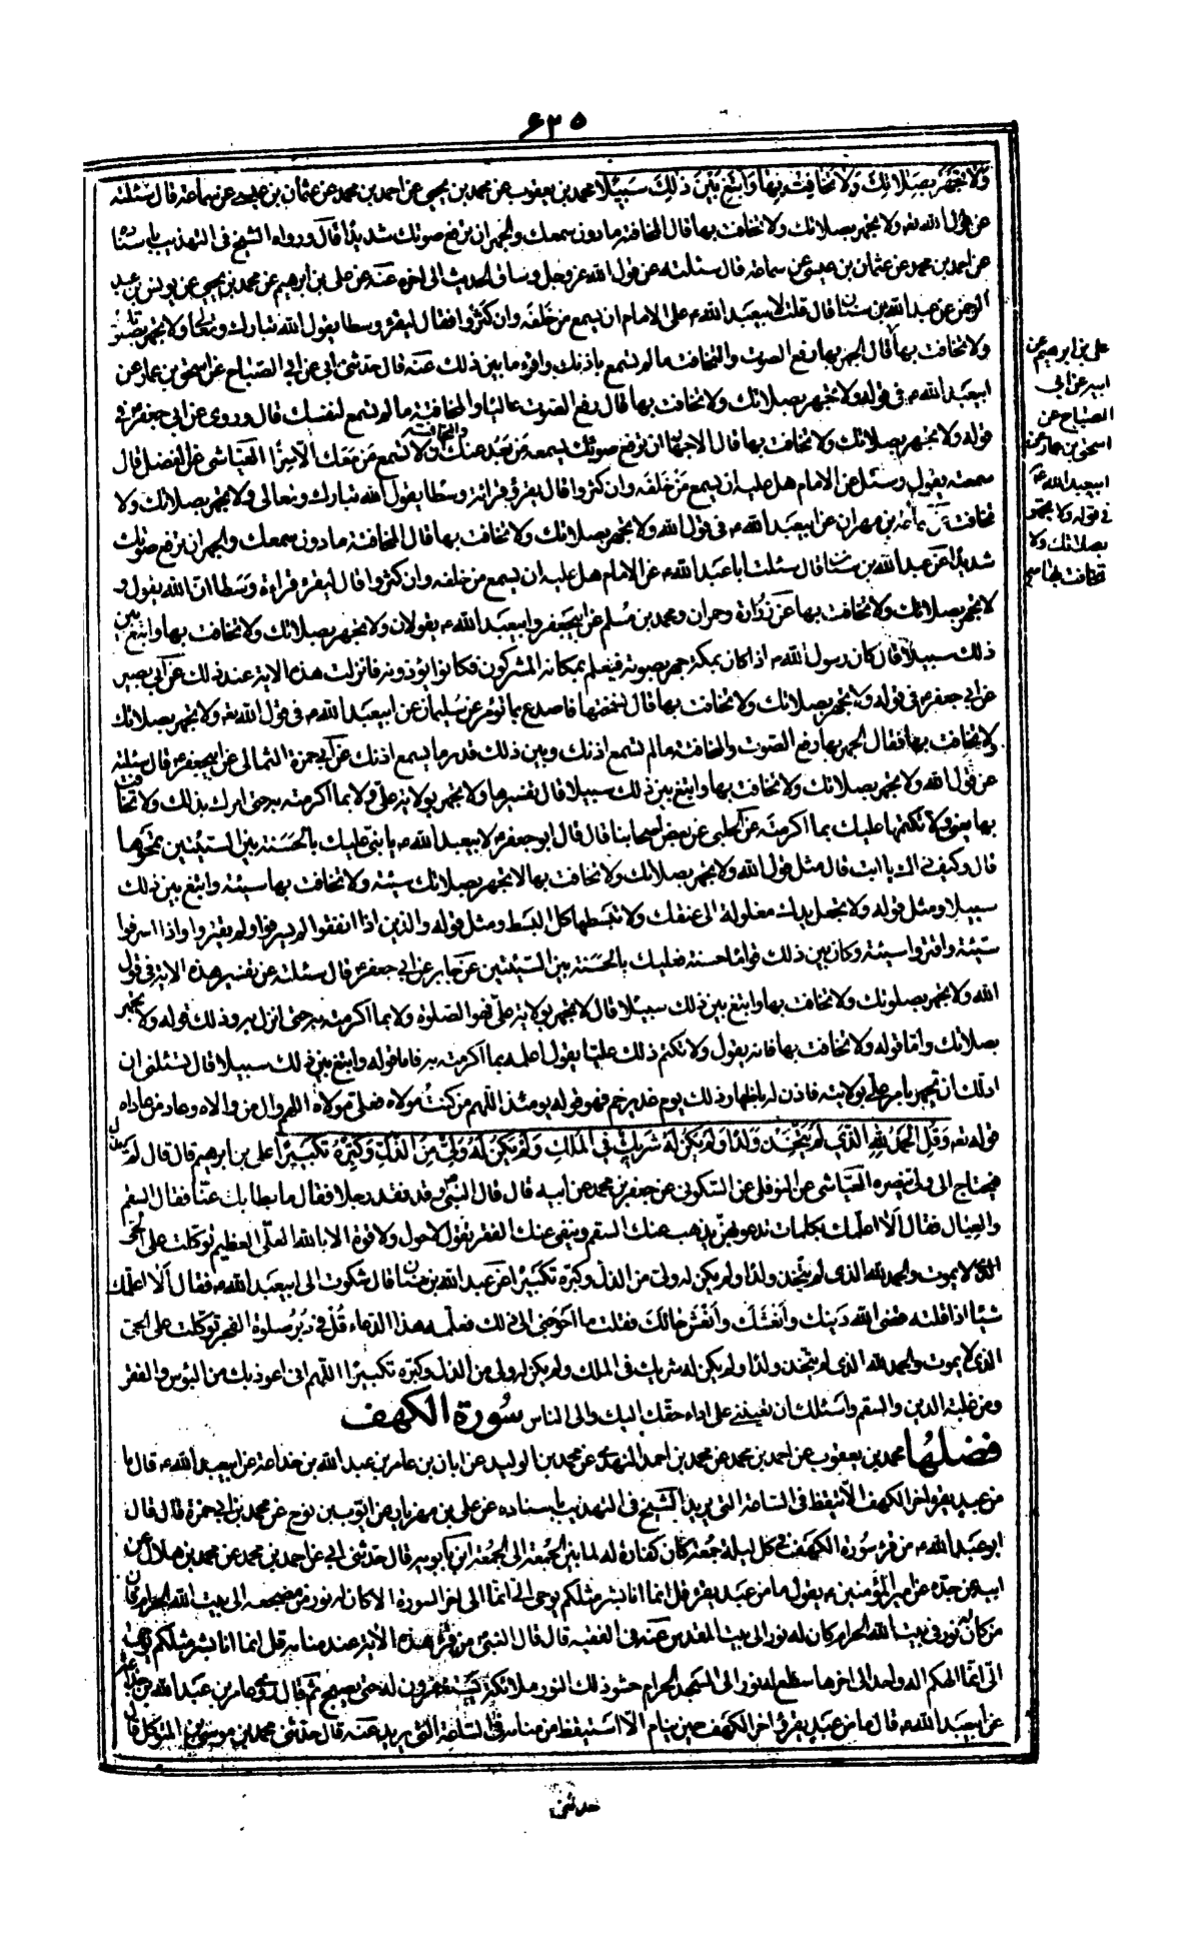 ٦٢٥
وَلا تَجْهَرْ بِصَلاتِكَ وَلا تُخافِتْ بِها وَابْتَغِ بَيْنَ ذلِكَ سَبِيلًا محمد بن يعقوب عن محمد بن يحيى عن احمد بن محمد عن عثمان بن عيسى عن سماعة قال سئلته
عن قول الله تع ولا تجهر بصلاتك ولا تخافت بها قال المخافتة ما دون سمعك والجهر ان ترفع صوتك شديدا قال ورواه الشيخ في التهذيب باسناده
عن احمد بن محمد عن عثمان بن عيسى عن سماعة قال سئلته عن قول الله عز وجل وساق الحديث الى اخره عنه عن علي بن ابرهيم عن محمد بن عيسى عن يونس بن عبد
الرحمن عن عبد الله بن سنان قال قلت لابيعبد الله ء على الامام ان يسمع من خلفه وان كثروا فقال ليقرء وسطا يقول الله تبارك وتعالى ولا تجهر بصلاتك
ولا تخافت بها قال الجهر بها رفع الصوت والتخافت ما لم تسمع باذنك واقرء ما بين ذلك عنه قال حدثني ابي عن الصباح عن اسحق بن عمار عن
ابيعبد الله ء في قوله ولا تجهر بصلاتك ولا تخافت بها قال رفع الصوت عاليا والمخافتة ما لم تسمع لنفسك قال وروى عن ابي جعفر ء في
قوله ولا تجهر بصلاتك ولا تخافت بها قال الاجهار ان ترفع صوتك يسمعه من بعد عنك والمخافتة ولا تسمع من معك الا سرا العياشي عن المفضل قال
سمعته يقول وسئل عن الامام هل عليه ان يسمع من خلفه وان كثروا قال يقرؤ قراءة وسطا يقول الله تبارك وتعالى ولا تجهر بصلاتك ولا
تخافت بها عن سماعة بن مهران عن ابيعبد الله ء في قول الله ولا تجهر بصلاتك ولا تخافت بها قال المخافتة ما دون سمعك والجهر ان ترفع صوتك
شديدا عن عبد الله بن سنان قال سئلت ابا عبد الله ء عن الامام هل عليه ان يسمع من خلفه وان كثروا قال ليقرء قراءة وسطا ان الله يقول و
لا تجهر بصلاتك ولا تخافت بها عن زرارة وحمران ومحمد بن مسلم عن ابيجعفر وابيعبد الله ء يقولان ولا تجهر بصلاتك ولا تخافت بها وابتغ بين
ذلك سبيلا قال كان رسول الله ص اذا كان بمكة جهر بصوته فيعلم بمكانه المشركون فكانوا يؤذونه فانزلت هذه الاية عند ذلك عن ابي بصير
عن ابي جعفر ء في قوله ولا تجهر بصلاتك ولا تخافت بها قال نسختها فاصدع بما تؤمر عن سليمان عن ابيعبد الله ء في قول الله تع ولا تجهر بصلاتك
ولا تخافت بها فقال الجهر بها رفع الصوت والمخافتة ما لم تسمع اذنك وبين ذلك قدر ما يسمع اذنك عن ابي حمزة الثمالي عن ابيجعفر ء قال سئلته
عن قول الله ولا تجهر بصلاتك ولا تخافت بها وابتغ بين ذلك سبيلا قال تفسيرها ولا تجهر بولاية علي ولا بما اكرمته به حتى امرك بذلك ولا تخافت
بها يعني ولا تكتمها عليك بما اكرمته عن الحلبي عن بعض اصحابنا قال قال ابو جعفر ء لابيعبد الله ء يا بني عليك بالحسنة بين السيئتين تمحوهما
قال وكيف ذلك يا ابت قال مثل قول الله ولا تجهر بصلاتك ولا تخافت بها لا تجهر بصلاتك سيئة ولا تخافت بها سيئة وابتغ بين ذلك
سبيلا ومثل قوله ولا تجعل يدك مغلولة الى عنقك ولا تبسطها كل البسط ومثل قوله والذين اذا انفقوا لم يسرفوا ولم يقتروا واذا اسرفوا
سيئة واقتروا سيئة وكان بين ذلك قواما حسنة فعليك بالحسنة بين السيئتين عن جابر عن ابي جعفر ء قال سئلته عن تفسير هذه الاية في قول
الله ولا تجهر بصلوتك ولا تخافت بها وابتغ بين ذلك سبيلا قال لا تجهر بولاية علي فهو الصلوة ولا بما اكرمته به حتى انزل به وذلك قوله ولا تجهر
بصلاتك واما قوله ولا تخافت بها فانه يقول ولا تكتم ذلك عليا يقول اعلمه بما اكرمته به فاما قوله وابتغ بين ذلك سبيلا قال تسئلني ان
اذنك ان تجهر بامر علي بولايته فاذن له باظهار ذلك يوم غدير خم فهو قوله يومئذ اللهم من كنت مولاه فعلي مولاه اللهم وال من والاه وعاد من عاداه
قوله تعه وَقُلِ الْحَمْدُ لِلَّهِ الَّذِي لَمْ يَتَّخِذْ وَلَدًا وَلَمْ يَكُنْ لَهُ شَرِيكٌ فِي الْمُلْكِ وَلَمْ يَكُنْ لَهُ وَلِيٌّ مِنَ الذُّلِّ وَكَبِّرْهُ تَكْبِيرًا علي بن ابرهيم قال قال لم يذل
فيحتاج الى ولي ينصره العياشي عن النوفلي عن السكوني عن جعفر بن محمد عن ابيه قال قال النبي ص وقد فقد رجلا فقال ما بطأ بك عنا فقال السقم
والعيال فقال الا اعلمك بكلمات تدعو بهن يذهب عنك السقم وينفي عنك الفقر تقول لا حول ولا قوة الا بالله العلي العظيم توكلت على الحي
الذي لا يموت والحمد لله الذي لم يتخذ ولدا ولم يكن له ولي من الذل وكبره تكبيرا عن عبد الله بن سنان قال شكوت الى ابيعبد الله ء فقال الا اعلمك
شيئا اذا قلته قضى الله دينك وانعشك وانعش حالك فقلت ما احوجني الى ذلك فعلمه هذا الدعاء قل في دبر صلوة الفجر توكلت على الحي
الذي لا يموت والحمد لله الذي لم يتخذ ولدا ولم يكن له شريك في الملك ولم يكن له ولي من الذل وكبره تكبيرا اللهم اني اعوذ بك من البؤس والفقر
ومن غلبة الدين والسقم واسئلك ان تعينني على اداء حقك اليك والى الناس سورة الكهف
فضلها محمد بن يعقوب عن احمد بن محمد عن محمد بن احمد النهدي عن محمد بن الوليد عن ابان بن عامر بن عبد الله بن جذاعة عن ابيعبد الله ء قال ما
من عبد يقرء اخر الكهف الا تيقظ في الساعة التي يريد الشيخ في التهذيب باسناده عن علي بن مهزيار عن ايوب بن نوح عن محمد بن ابي حمزة قال قال
ابو عبد الله ء من قرء سورة الكهف في كل ليلة جمعة كان كفارة له لما بين الجمعة الى الجمعة ابن بابويه قال حدثني ابي عن احمد بن محمد عن محمد بن هلال عن
ابيه عن جده عن امير المؤمنين ء يقول ما من عبد يقرء قل انما انا بشر مثلكم يوحى الي انما الى اخر السورة الا كان له نور من مضجعه الى بيت الله الحرام فان
من كان له نور في بيت الله الحرام كان له نور الى بيت المقدس عنه في الفقيه قال قال النبي ص من قرء هذه الاية عند منامه قل انما انا بشر مثلكم يوحى
الي انما الهكم اله واحد الى اخرها سطع له نور الى المسجد الحرام حشو ذلك النور ملائكة يستغفرون له حتى يصبح ثم قال روى عامر بن عبد الله بن جذاعة
عن ابيعبد الله ء قال ما من عبد يقرؤ اخر الكهف حين ينام الا استيقظ من منامه في الساعة التي يريد عنه قال حدثني محمد بن موسى بن المتوكل قال
حدثني
علي بن ابرهيم عن
ابيه عن ابي
الصباح عن
اسحق بن عمار عن
ابيعبد الله ء
في قوله ولا تجهر
بصلاتك ولا
تخافت بها